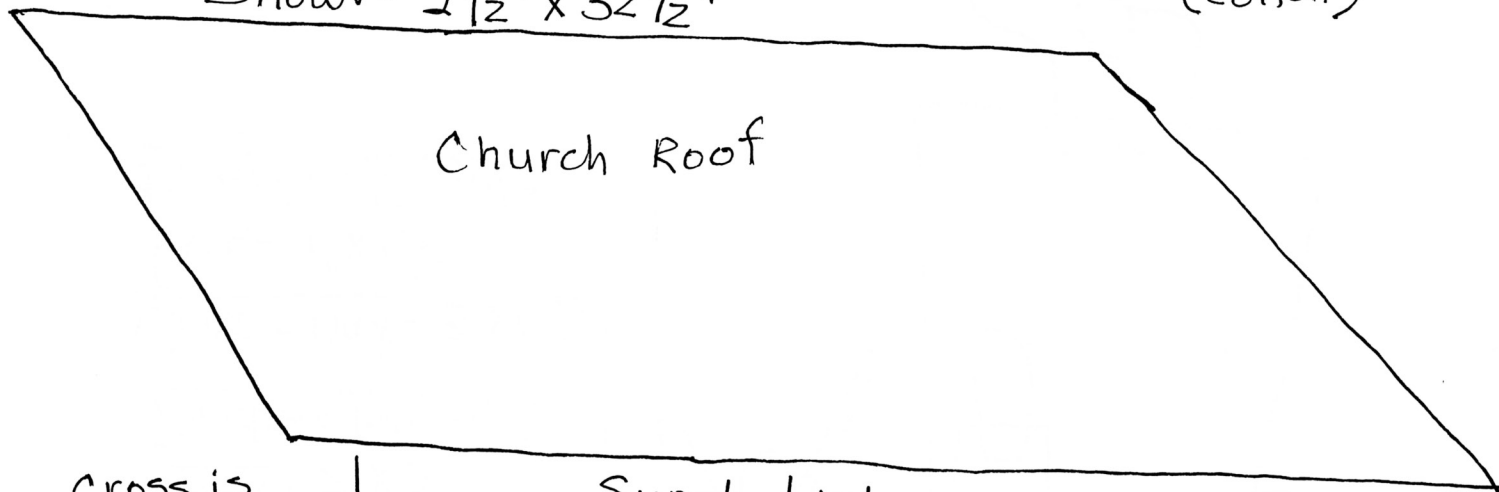 Snow: 2 1/2 x 32 1/2"
(cotton)
Church Roof
Cross is